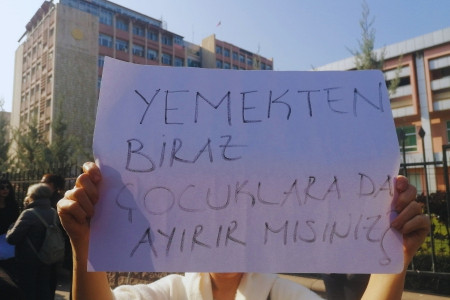 YEMEKTEN
BİRAZ
ÇOCUKLARA DA
AYIRIR MISINIZ?